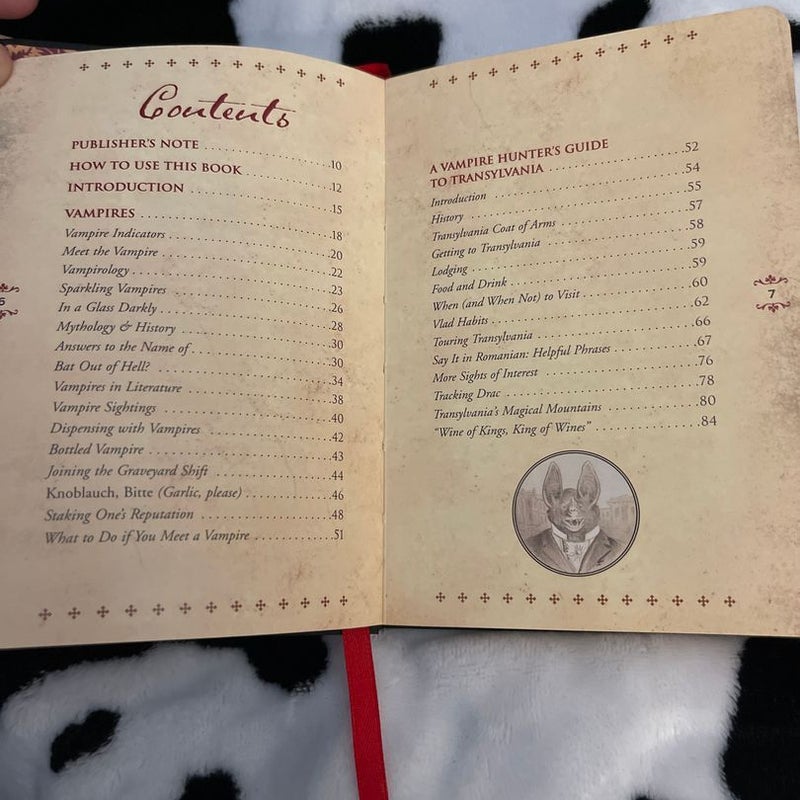 Contents
PUBLISHER'S NOTE ..........10
HOW TO USE THIS BOOK ..........12
INTRODUCTION ..........15
VAMPIRES ..........18
Vampire Indicators ..........20
Meet the Vampire ..........22
Vampirology ..........23
Sparkling Vampires ..........26
In a Glass Darkly ..........28
Mythology & History ..........30
Answers to the Name of ..........30
Bat Out of Hell? ..........34
Vampires in Literature ..........38
Vampire Sightings ..........40
Dispensing with Vampires ..........42
Bottled Vampire ..........43
Joining the Graveyard Shift ..........44
Knoblauch, Bitte (Garlic, please) ..........46
Staking One's Reputation ..........48
What to Do if You Meet a Vampire ..........51
6
A VAMPIRE HUNTER'S GUIDE
TO TRANSYLVANIA ..........52
Introduction ..........54
History ..........55
Transylvania Coat of Arms ..........57
Getting to Transylvania ..........58
Lodging ..........59
Food and Drink ..........59
When (and When Not) to Visit ..........60
Vlad Habits ..........62
Touring Transylvania ..........66
Say It in Romanian: Helpful Phrases ..........67
More Sights of Interest ..........76
Tracking Drac ..........78
Transylvania's Magical Mountains ..........80
"Wine of Kings, King of Wines" ..........84
7